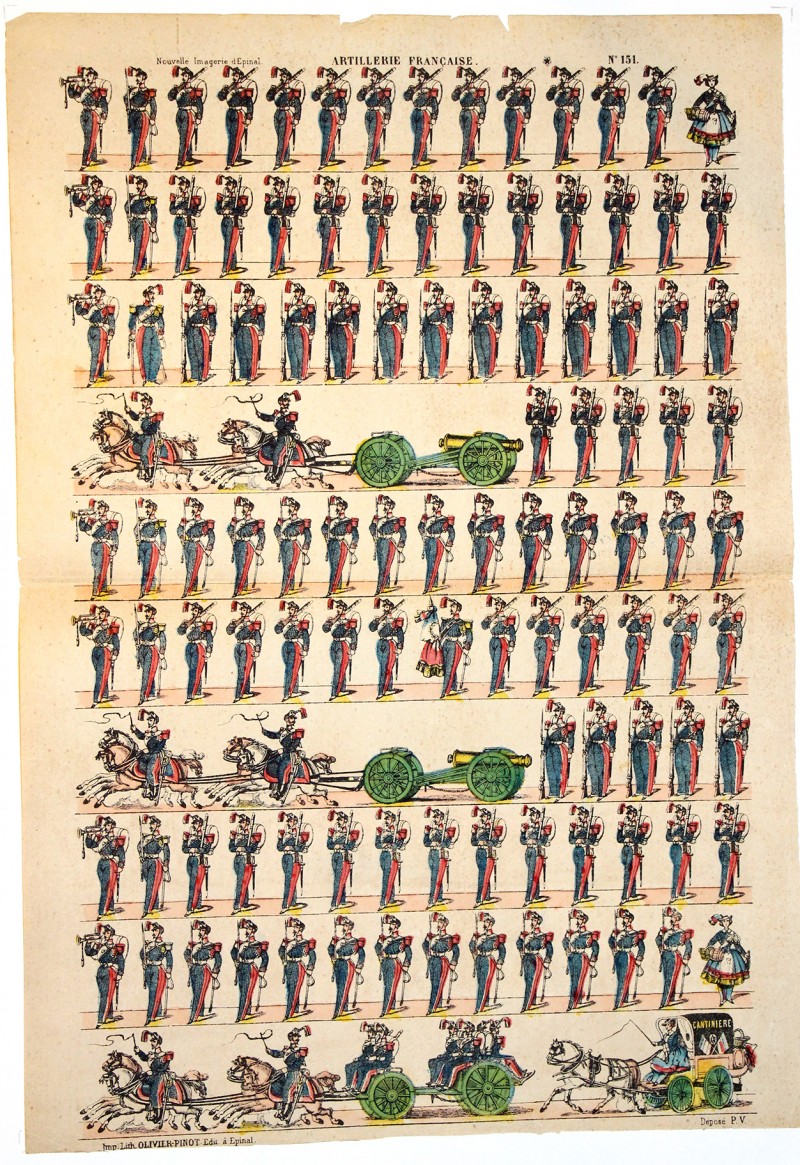 Nouvelle Imagerie d'Epinal. ARTILLERIE FRANÇAISE. N° 151.
CANTINIERE
Imp. Lith. OLIVIER-PINOT Edit. à Epinal.
Déposé P. V.